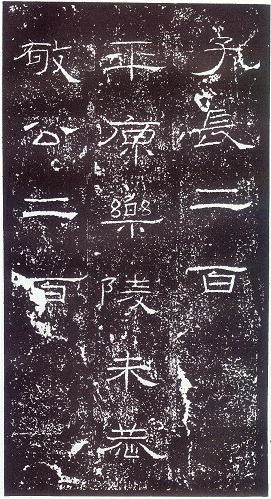 子長二百
平原樂陵朱恭
敬公二百